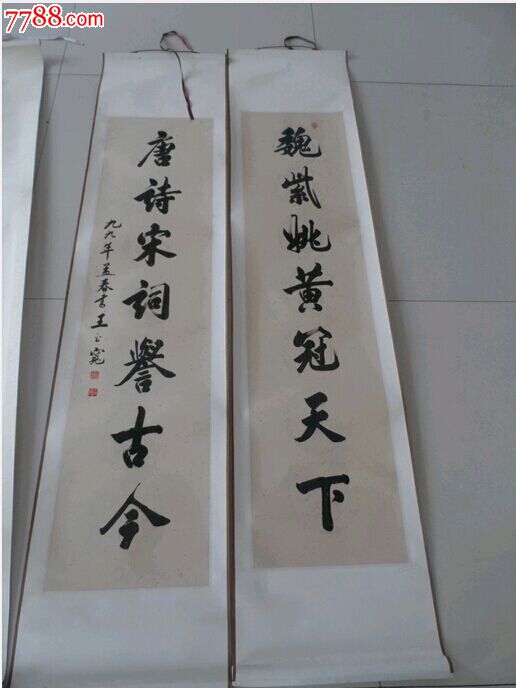 7788.com
魏紫姚黄冠天下
唐詩宋詞譽古今
九九年孟春書王玉寬